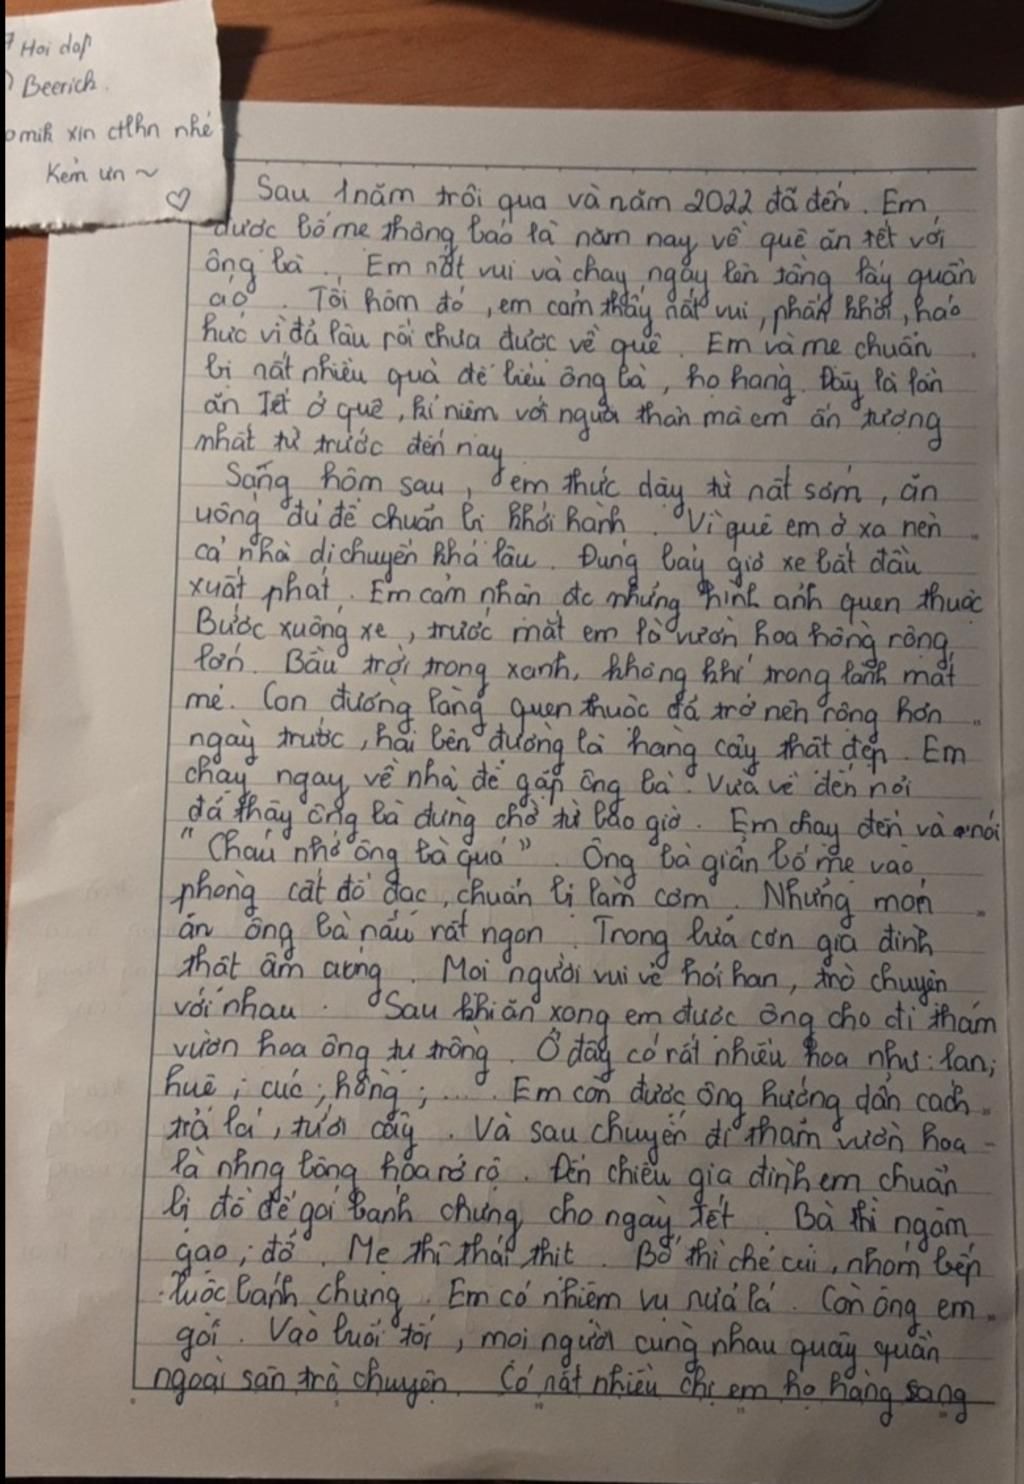 Hoi dap
Beerich.
mik xin ctlhn nhé
Kem ưn ~
Sau 1 năm trôi qua và năm 2022 đã đến. Em
được bố mẹ thông báo là năm nay về quê ăn tết với
ông bà. Em nất vui và chạy ngay lên tầng lấy quần
áo. Tối hôm đó, em cảm thấy nất vui, phấn khởi, háo
hức vì đã lâu rồi chưa được về quê. Em và mẹ chuẩn
bị nất nhiều quà để biếu ông bà, họ hàng. Đây là lần
ăn Tết ở quê, kỉ niệm với người thân mà em ấn tượng
nhất từ trước đến nay
Sáng hôm sau, em thức dậy từ nất sớm, ăn
uống đủ để chuẩn bị khởi hành. Vì quê em ở xa nên
cả nhà di chuyển khá lâu. Đúng bảy giờ xe bắt đầu
xuất phát. Em cảm nhận đc những hình ảnh quen thuộc
Bước xuống xe, trước mắt em là vườn hoa hồng rộng
lớn. Bầu trời trong xanh, không khí trong lành mát
mẻ. Con đường làng quen thuộc đã trở nên rộng hơn
ngày trước, hai bên đường là hàng cây thật đẹp. Em
chạy ngay về nhà để gặp ông bà. Vừa về đến nơi
đã thấy ông bà đứng chờ từ bao giờ. Em chạy đến và nói
"Cháu nhớ ông bà quá". Ông bà giản bố mẹ vào
phòng cất đồ đạc, chuẩn bị làm cơm. Những món
ăn ông bà nấu rất ngon. Trong bữa cơn gia đình
thật ấm cúng. Mọi người vui vẻ hỏi han, trò chuyện
với nhau. Sau khi ăn xong em được ông cho đi thăm
vườn hoa ông tự trồng. Ở đây có rất nhiều hoa như: lan;
huệ; cúc; hồng; .... Em còn được ông hướng dẫn cách
trả lá, tưới cây. Và sau chuyến đi thăm vườn hoa
là nhng bông hoa rớ rộ. Đến chiều gia đình em chuẩn
bị đồ để gói bánh chưng cho ngày Tết. Bà thì ngâm
gạo; đỗ. Mẹ thì thái thịt. Bố thì chẻ củi, nhóm bếp
luộc bánh chưng. Em có nhiệm vụ nửá lá. Còn ông em
gói. Vào buổi tối, mọi người cùng nhau quây quần
ngoài sân trò chuyện. Có nất nhiều chị em họ hàng sang